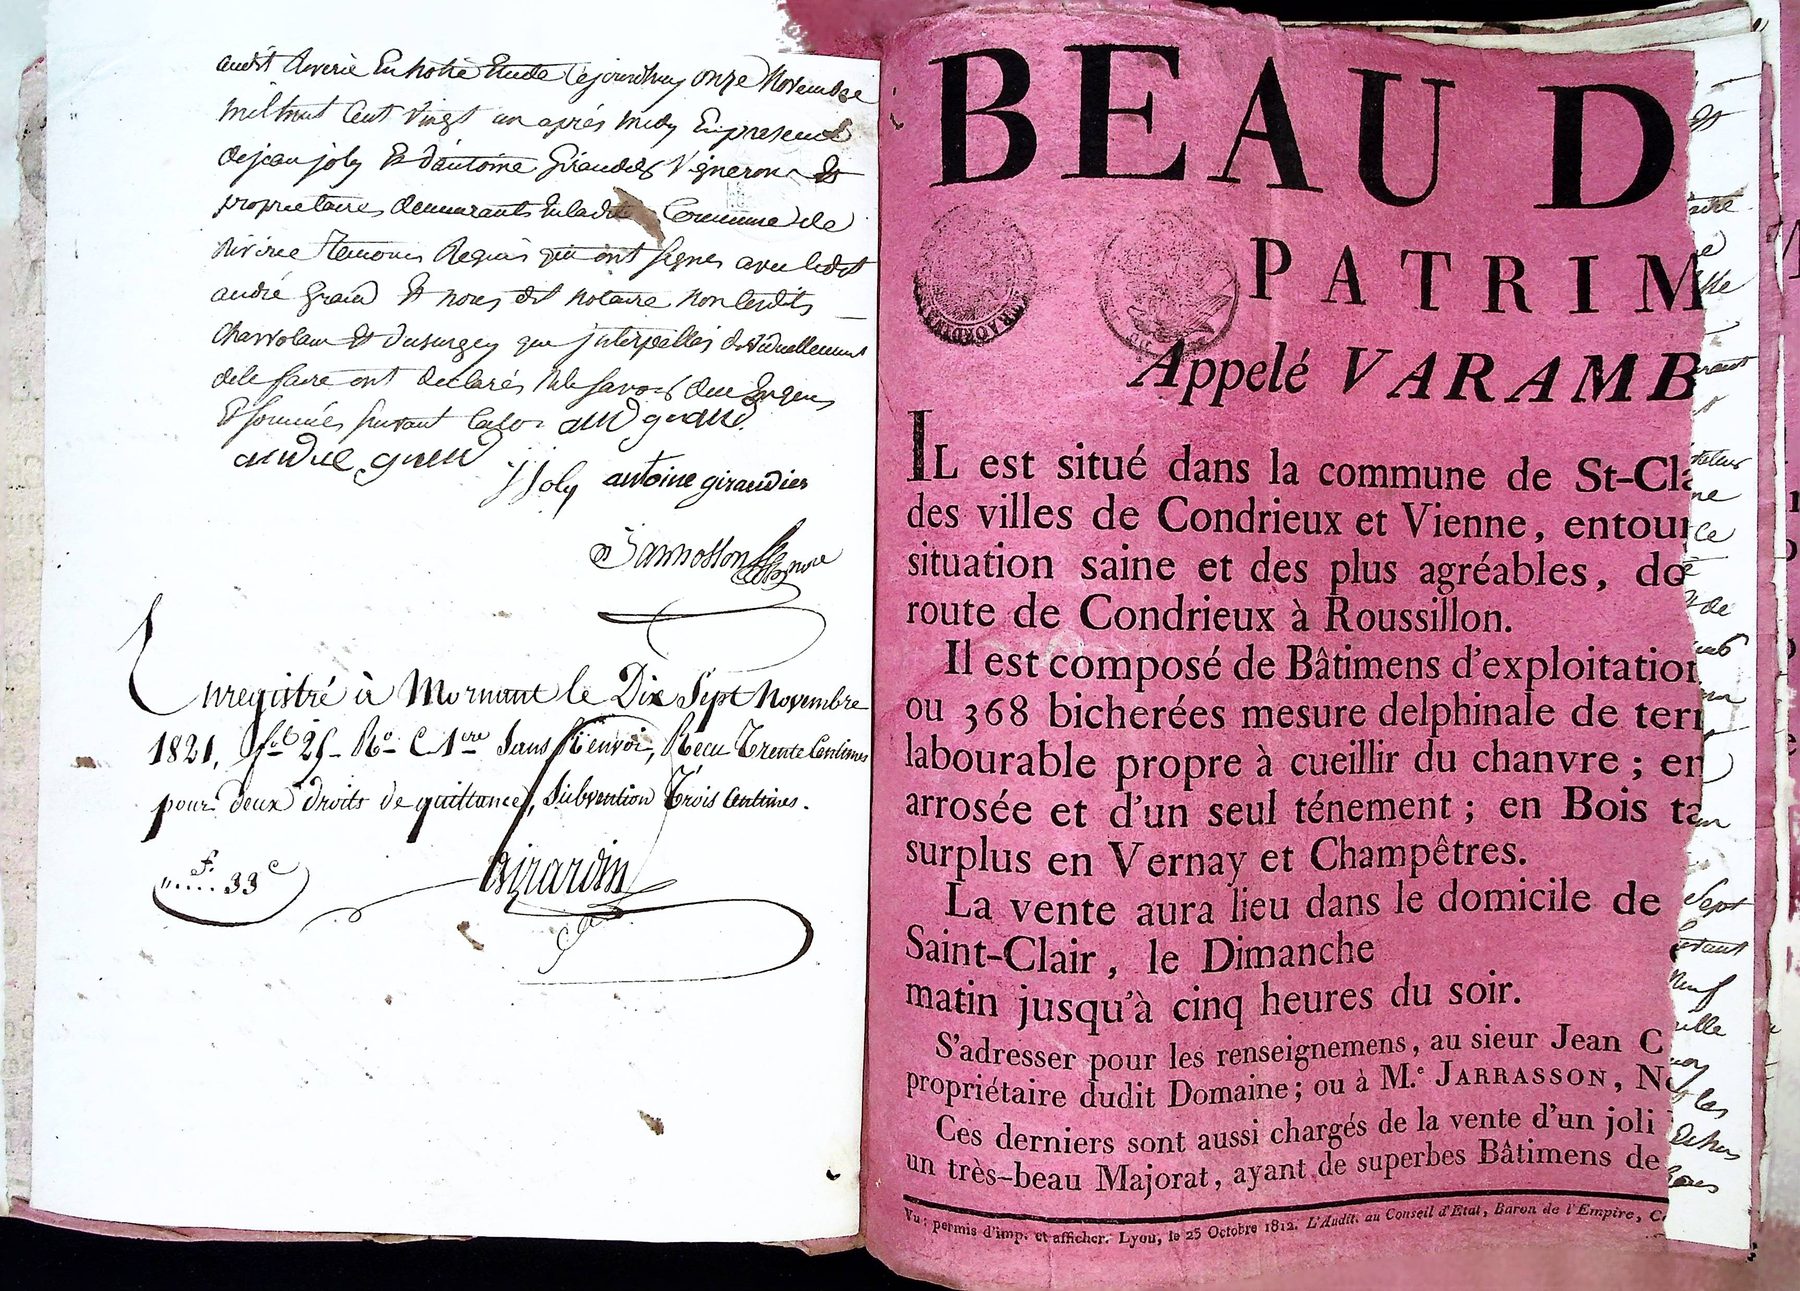 audit Riverie En notre Etude Cejourdhuy onze Novembre
mil huit Cent vingt un après midy En presence
de jean joly Et d'antoine Giraudier Vigneron Et
proprietaires demeurants Enladite Commune de
Riverie Temoins Requis qui ont signés avec ledit
andré Et nous dit notaire non lesdits
Et que interpellés individuellement
de le faire ont declarés ne le savoir
Et sommés suivant la loi
j Joly antoine giraudier
Enregistré à Mornant le Dix Sept Novembre
1821, fo. 25 Ro. C 1ere Sans Renvoi, Recu Trente Centimes
pour deux droits de quittance, Subvention Trois Centimes.
f. 33 c
Girardin
BEAU D
PATRIM
Appelé VARAMB
IL est situé dans la commune de St-Cla
des villes de Condrieux et Vienne, entour
situation saine et des plus agréables, do
route de Condrieux à Roussillon.
Il est composé de Bâtimens d'exploitation
ou 368 bicherées mesure delphinale de terr
labourable propre à cueillir du chanvre ; en
arrosée et d'un seul ténement ; en Bois ta
surplus en Vernay et Champêtres.
La vente aura lieu dans le domicile de
Saint-Clair, le Dimanche
matin jusqu'à cinq heures du soir.
S'adresser pour les renseignemens, au sieur Jean C
propriétaire dudit Domaine; ou à M.e JARRASSON, No
Ces derniers sont aussi chargés de la vente d'un joli
un très-beau Majorat, ayant de superbes Bâtimens de
Vu : permis d'imp. et afficher. Lyon, le 25 Octobre 1812. L'Audit. au Conseil d'Etat, Baron de l'Empire, C